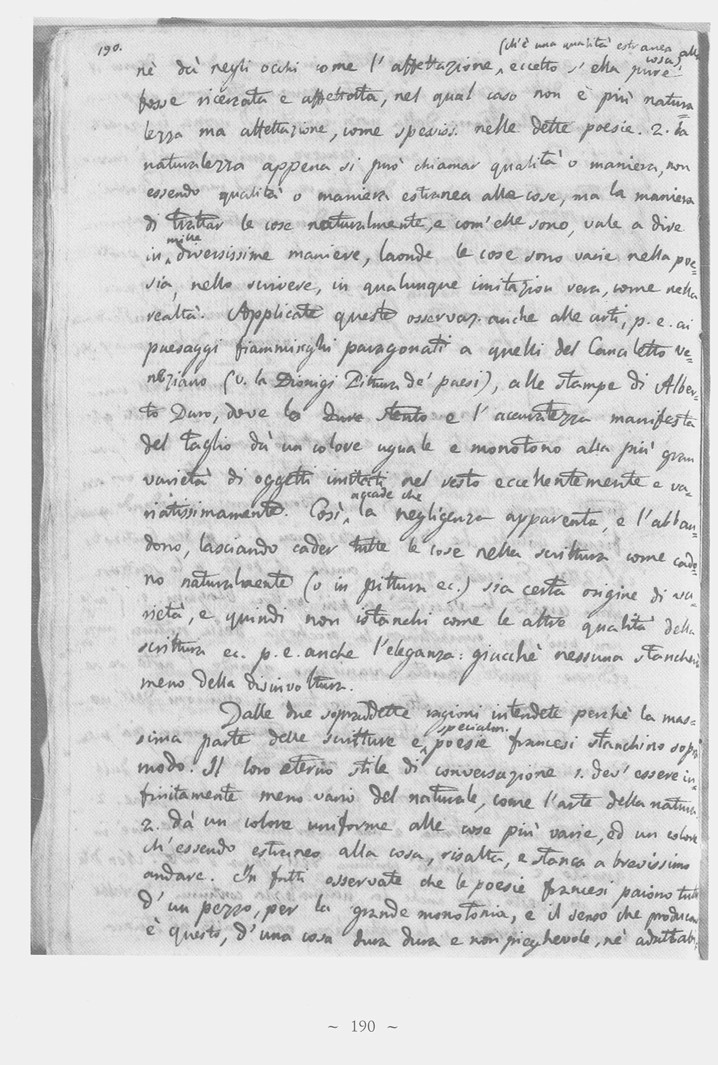 190.
(ch'è una qualità estranea alla cosa)
nè dà negli occhi come l'affettazione, eccetto s'ella pure
fosse ricercata e affettata, nel qual caso non è più natura
lezza ma affettazione, come spesiss. nelle dette poesie. 2. la
naturalezza appena si può chiamar qualità o maniera, non
essendo qualità o maniera estranea alle cose, ma la maniera
di trattar le cose naturalmente, e com'elle sono, vale a dire
in mille diversissime maniere, laonde le cose sono varie nella poe=
sia, nello scrivere, in qualunque imitazion vera, come nella
realtà. Applicate queste osservaz. anche alle arti, p. e. ai
paesaggi fiamminghi paragonati a quelli del Canaletto ve=
neziano (v. la Dionigi Pittura de' paesi), alle stampe di Alber=
to Duro, dove lo stento e l'accuratezza manifesta
del taglio dà un colore uguale e monotono alla più gran
varietà di oggetti imitati nel resto eccellentemente e va=
riatissimamente. Così accade che la negligenza apparente, e l'abban=
dono, lasciando cader tutte le cose nella scrittura come cado=
no naturalmente (o in pittura ec.) sia certa origine di va=
rietà, e quindi non istanchi come le altre qualità della
scrittura ec. p. e. anche l'eleganza: giacchè nessuna stancherà
meno della disinvoltura.
Dalle due sopraddette ragioni intendete perchè la mas=
sima parte delle scritture e specialm. poesie francesi stanchino sopra
modo. Il loro eterno stile di conversazione 1. dev'essere in=
finitamente meno vario del naturale, come l'arte della natura
2. dà un colore uniforme alle cose più varie, ed un colore
ch'essendo estraneo alla cosa, risalta, e stanca a brevissimo
andare. In fatti osservate che le poesie francesi paiono tutte
d'un pezzo, per la grande monotonia, e il senso che producono
è questo, d'una cosa dura dura e non pieghevole, nè adattabi=
~ 190 ~